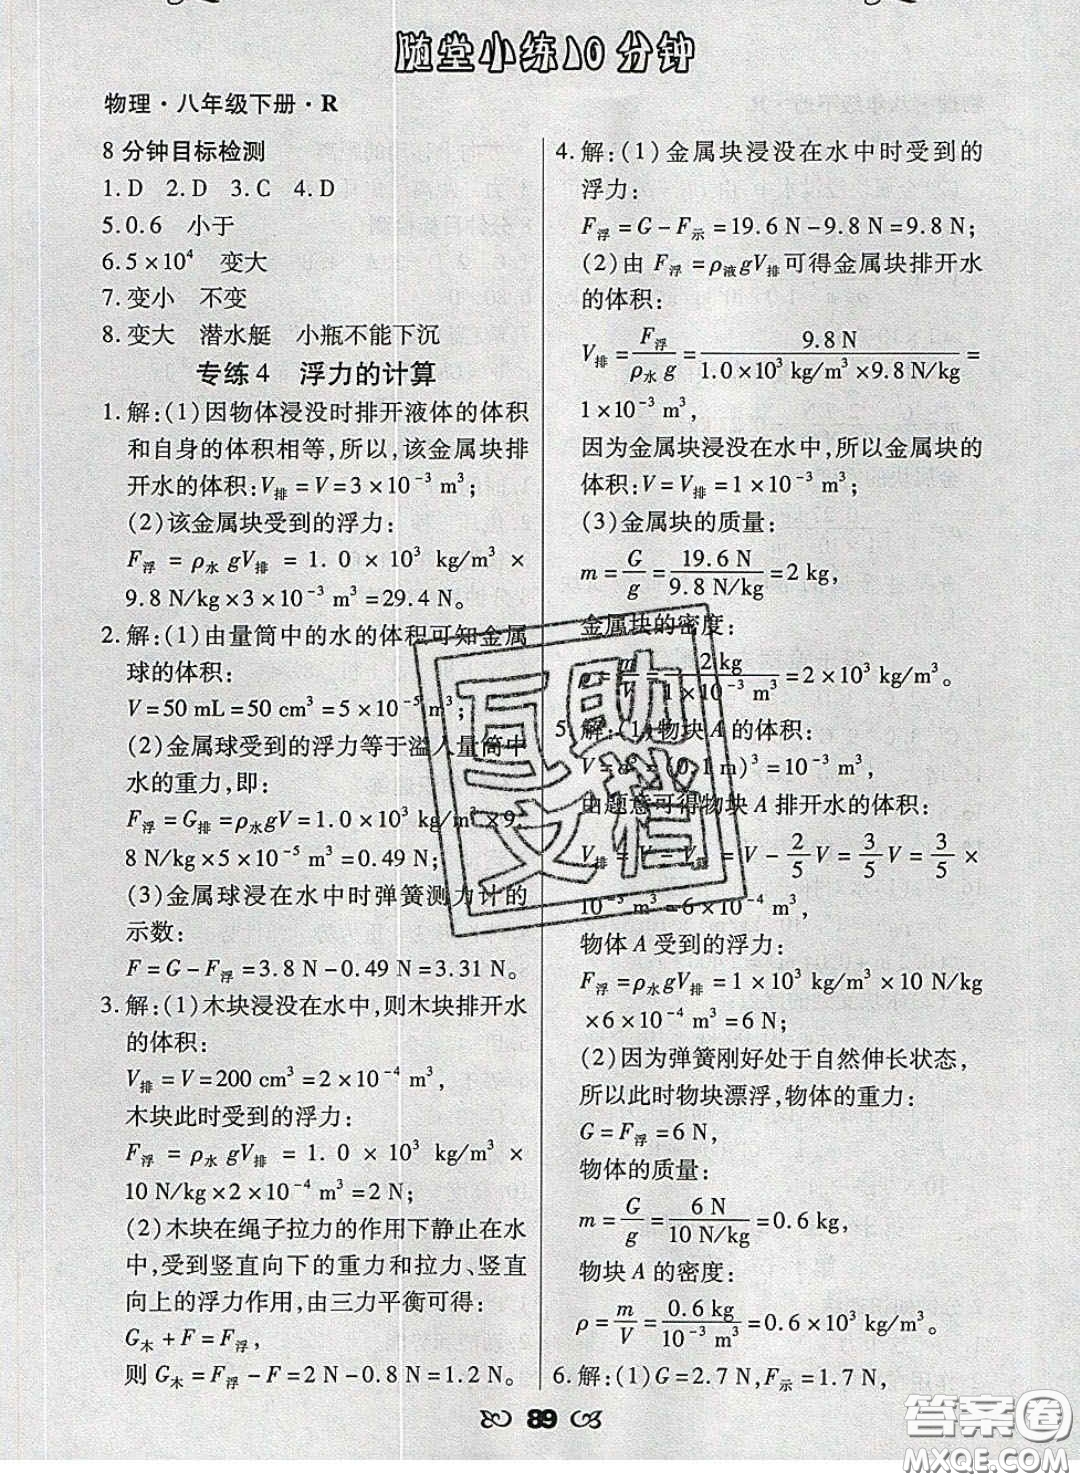 随堂小练10分钟
物理·八年级下册·R
8分钟目标检测
1. D 2. D 3. C 4. D
5. 0.6 小于
6. 5×10⁴ 变大
7. 变小 不变
8. 变大 潜水艇 小瓶不能下沉
专练4 浮力的计算
1. 解:(1)因物体浸没时排开液体的体积
和自身的体积相等,所以,该金属块排
开水的体积:V排=V=3×10⁻³ m³;
(2)该金属块受到的浮力:
F浮=ρ水gV排=1.0×10³ kg/m³×
9.8 N/kg×3×10⁻³ m³=29.4 N。
2. 解:(1)由量筒中的水的体积可知金属
球的体积:
V=50 mL=50 cm³=5×10⁻⁵ m³;
(2)金属球受到的浮力等于溢入量筒中
水的重力,即:
F浮=G排=ρ水gV=1.0×10³ kg/m³×9.
8 N/kg×5×10⁻⁵ m³=0.49 N;
(3)金属球浸在水中时弹簧测力计的
示数:
F=G-F浮=3.8 N-0.49 N=3.31 N。
3. 解:(1)木块浸没在水中,则木块排开水
的体积:
V排=V=200 cm³=2×10⁻⁴ m³,
木块此时受到的浮力:
F浮=ρ水gV排=1.0×10³ kg/m³×
10 N/kg×2×10⁻⁴ m³=2 N;
(2)木块在绳子拉力的作用下静止在水
中,受到竖直向下的重力和拉力、竖直
向上的浮力作用,由三力平衡可得:
G木+F=F浮,
则 G木=F浮-F=2 N-0.8 N=1.2 N。
4. 解:(1)金属块浸没在水中时受到的
浮力:
F浮=G-F示=19.6 N-9.8 N=9.8 N;
(2)由 F浮=ρ液gV排可得金属块排开水
的体积:
V排=F浮/(ρ水g)=9.8 N/(1.0×10³ kg/m³×9.8 N/kg)=
1×10⁻³ m³,
因为金属块浸没在水中,所以金属块的
体积:V=V排=1×10⁻³ m³;
(3)金属块的质量:
m=G/g=19.6 N/(9.8 N/kg)=2 kg,
金属块的密度:
ρ=m/V=2 kg/(1×10⁻³ m³)=2×10³ kg/m³。
5. 解:(1)物块A的体积:
V=a³=(0.1 m)³=10⁻³ m³,
由题意可得物块A排开水的体积:
V排=V-V露=V-2/5V=3/5V=3/5×
10⁻³ m³=6×10⁻⁴ m³,
物体A受到的浮力:
F浮=ρ水gV排=1×10³ kg/m³×10 N/kg
×6×10⁻⁴ m³=6 N;
(2)因为弹簧刚好处于自然伸长状态,
所以此时物块漂浮,物体的重力:
G=F浮=6 N,
物体的质量:
m=G/g=6 N/(10 N/kg)=0.6 kg,
物块A的密度:
ρ=m/V=0.6 kg/(10⁻³ m³)=0.6×10³ kg/m³。
6. 解:(1)G=2.7 N,F示=1.7 N,
89
互助文档
答案圈
MXQE.COM